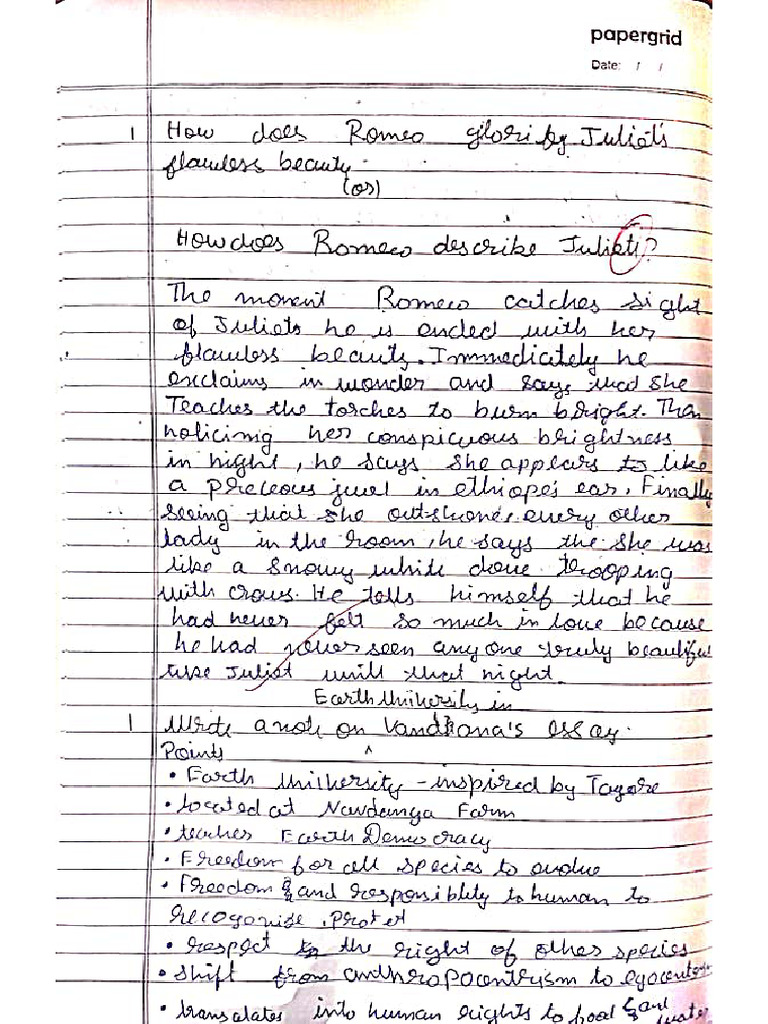 papergrid
Date: / /
1 How does Romeo glorify Juliet's
flawless beauty.
(or)
How does Romeo describe Juliet?
The moment Romeo catches sight
of Juliets he is ended with her
flawless beauty. Immediately he
exclaims in wonder and says that she
Teaches the torches to burn bright. Then
noticing her conspicuous brightness
in night, he says she appears to like
a preceous jewel in ethiope's ear. Finally
seeing that she outshone, every other
lady in the room, he says the she was
like a snowy white dove trooping
with crows. He tells himself that he
had never felt so much in love because
he had never seen any one truly beautiful
like Juliet until that night.
Earth University in
1 Write a note on Vandhana's essay.
Points
• Earth University - inspired by Tagore
• located at Navdanya Farm
• teaches Earth Democracy
• Freedom for all species to
• Freedom & and responsiblity to human to
recogonise, protet
• respect to the right of other species
• shift from anthropocentrism to
• translates into human rights to food & and water